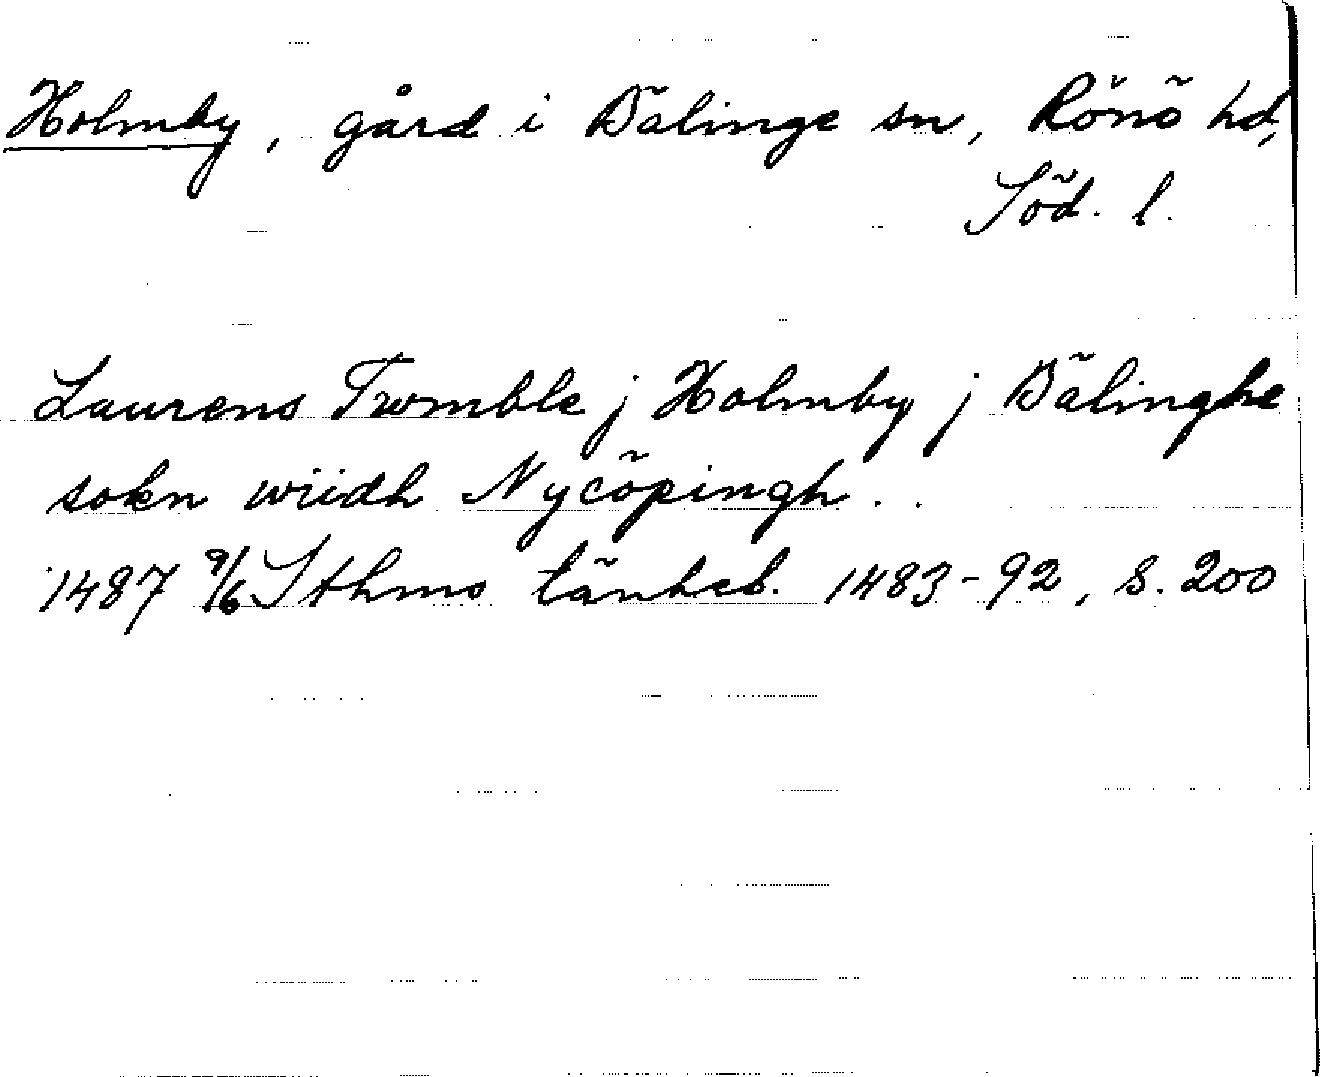 Holmby, gård i Bälinge sn, Rönö hd,
Söd. l.
Laurens Twmble j Holmby j Bälinghe
sokn wiidh Nycöpingh . .
1487 9/6 Sthms tänkeb. 1483-92, s. 200